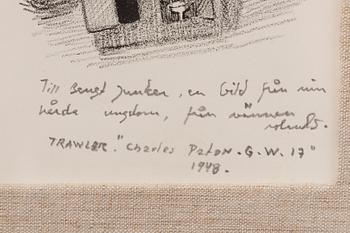 Till Bengt Junker, en bild från min
hårda ungdom, från vännen
Roland S.
TRAWLER. "Charles Paton. G.W. 17"
1948.